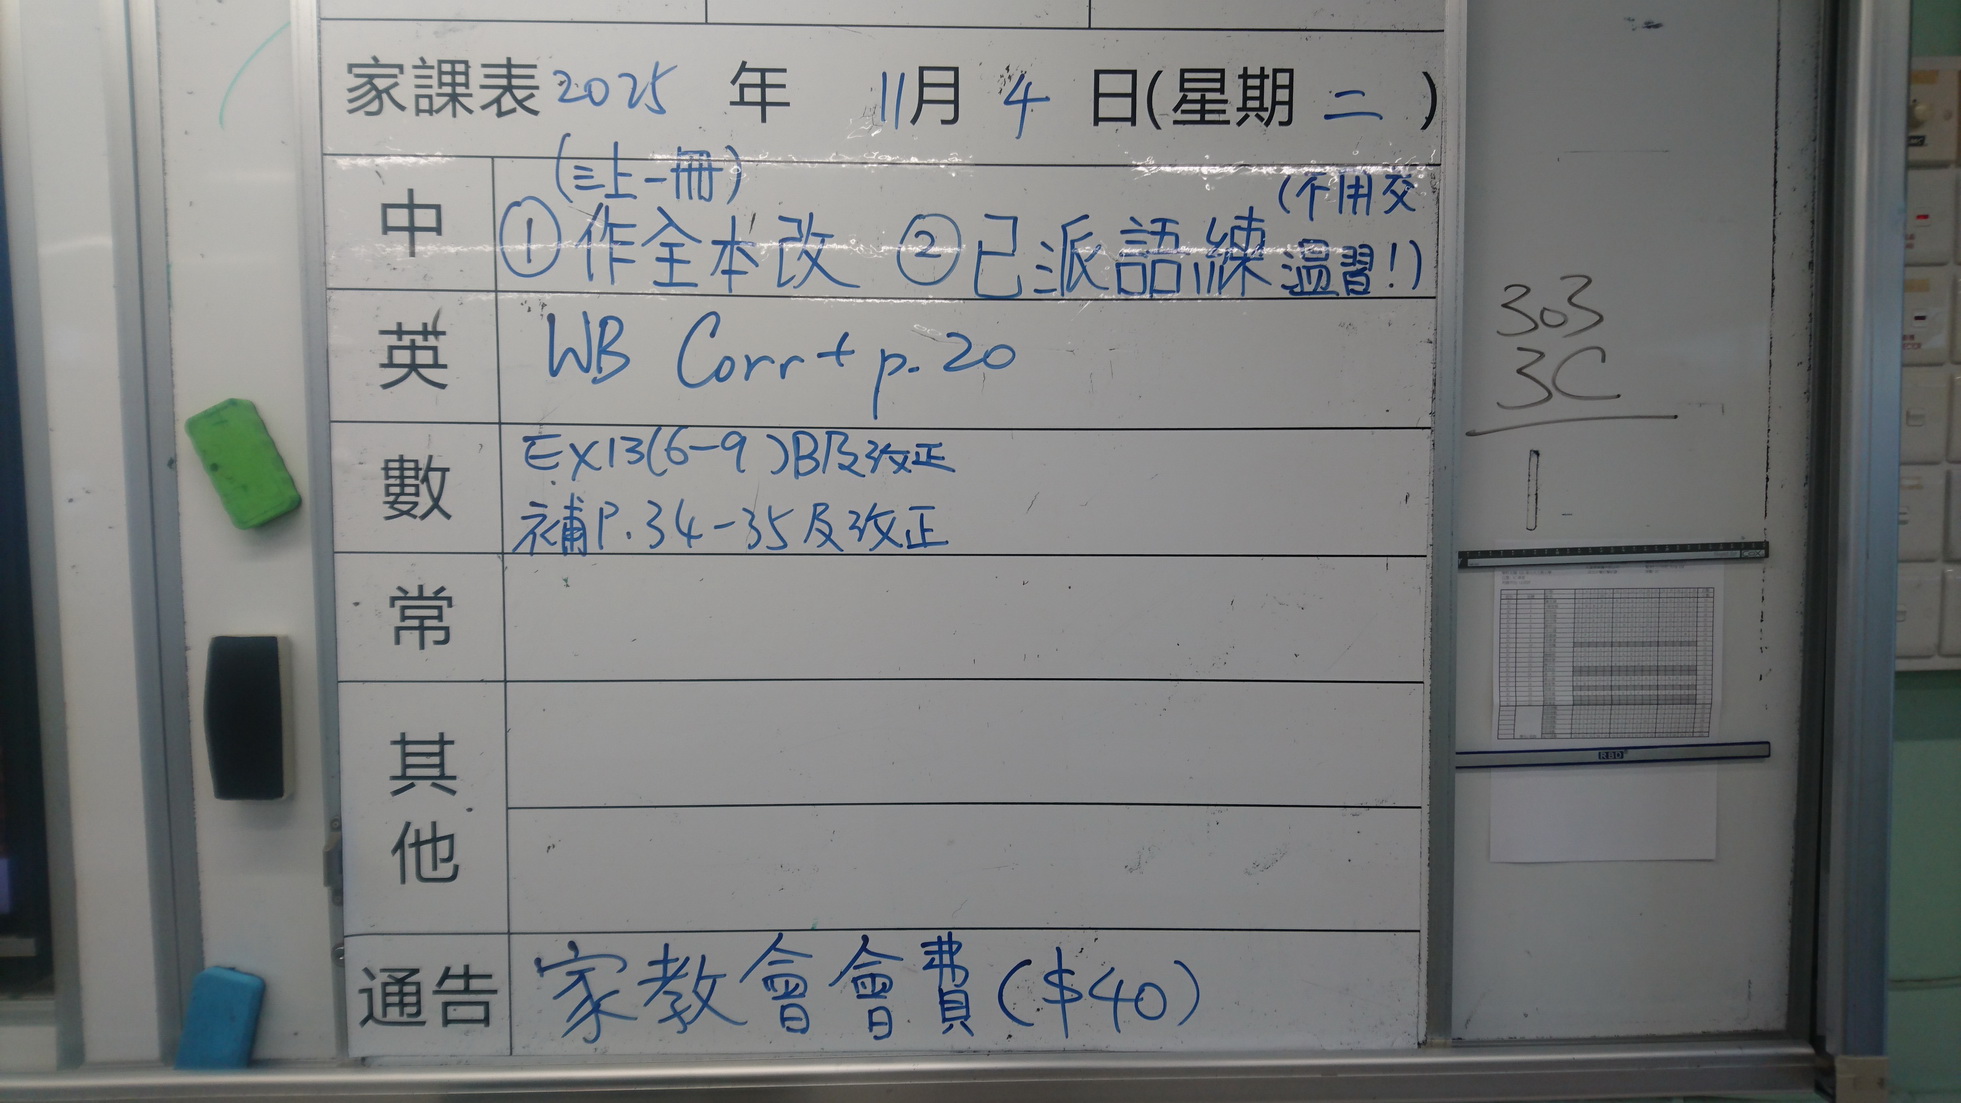 家課表 2025 年 11月 4 日(星期 二 )
中
(三上一冊)
①作全本改 ②已派語練(不用交
温習!)
英
WB Corr + p.20
數
Ex13(6-9)B及改正
補P.34-35及改正
常
其他
通告
家教會會費($40)
303
3C
1